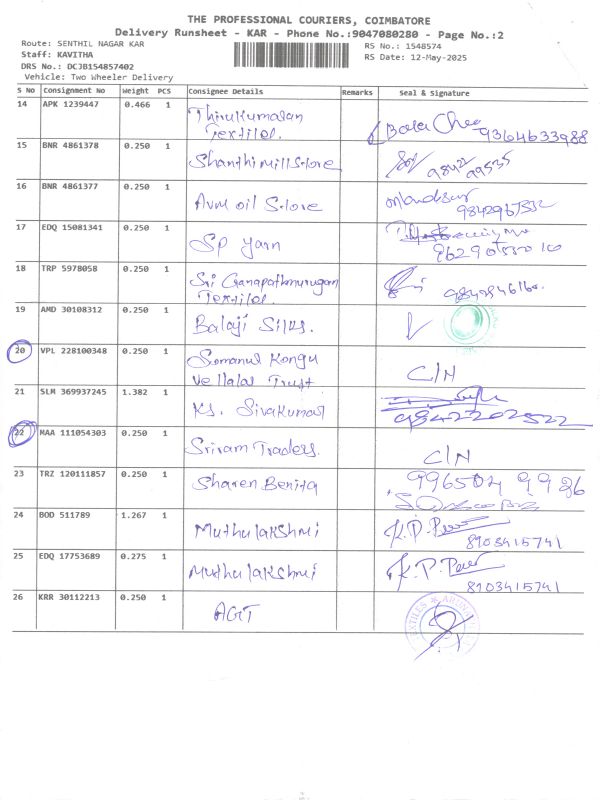 THE PROFESSIONAL COURIERS, COIMBATORE
Delivery Runsheet - KAR - Phone No.:9047080280 - Page No.:2
Route: SENTHIL NAGAR KAR
Staff: KAVITHA
DRS No.: DCJB154857402
Vehicle: Two Wheeler Delivery
RS No.: 1548574
RS Date: 12-May-2025
S No Consignment No Weight PCS Consignee Details Remarks Seal & Signature
14 APK 1239447 0.466 1 Thirukumaran
Textiles. 9364633988
15 BNR 4861378 0.250 1 Shanthi mill Store
9842 99535
16 BNR 4861377 0.250 1 Avm oil Store
9842967532
17 EDQ 15081341 0.250 1 Sp yarn
18 TRP 5978058 0.250 1 Sri Ganapathmurugan
Textiles.
19 AMD 30108312 0.250 1 Balaji Silks.
20 VPL 228100348 0.250 1 Kongu
Vellalar Trust C/N
21 SLM 369937245 1.382 1 KS. Sivakumar
9842202522
22 MAA 111054303 0.250 1 Sriram Traders. C/N
23 TRZ 120111857 0.250 1 Sharen Benita 996504 9926
24 BOD 511789 1.267 1 Muthulakshmi K.P.
8903415741
25 EDQ 17753689 0.275 1 Muthulakshmi K.P.
8903415741
26 KRR 30112213 0.250 1 AGT
TEXTILES